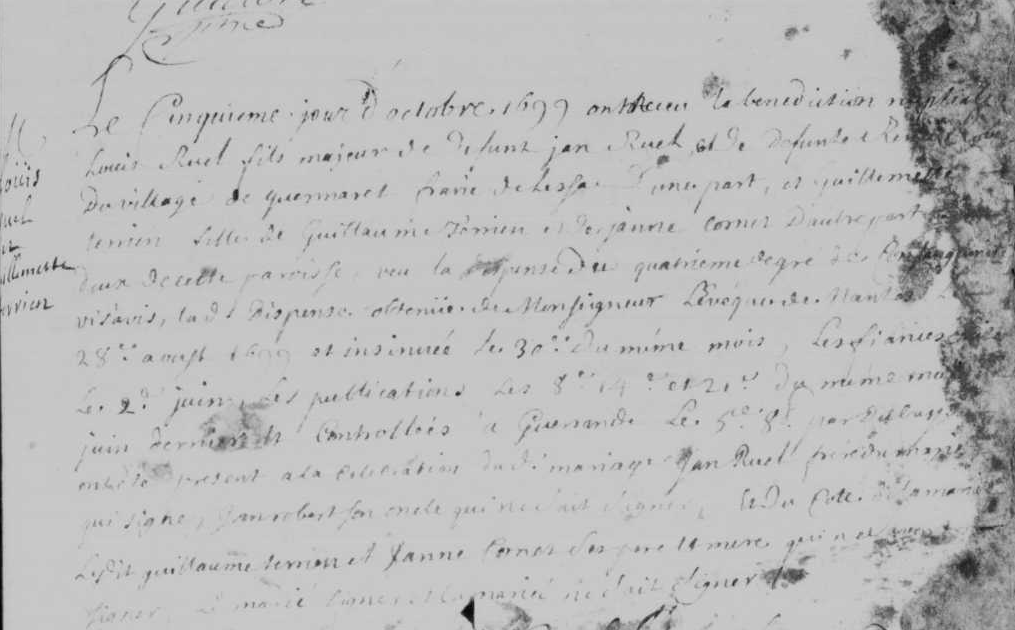 Le Cinquieme jour d'octobre 1699 ont receu la benediction nuptialle
Louis Ruel fils majeur de defunt jan Ruel et de defunte
Du village de quermaret frairie de d'une part, et guillemette
terrien fille de Guillaume Terrien et de janne Cornet D'autre part
deux de cette paroisse, veu la dispense du quatriéme degré de Consanguinité
vis a vis, lad. dispense obtenüe de Monseigneur L'évéque de Nantes Le
28e aoust 1699 et insinuée le 30e du méme mois, Les fiances
Le 2d juin, Les publications Les 8e 14e et 21e du méme mois
juin dernier et Controllées a Guerande Le 5e 8e par
ont été present a la celebration dud. mariage Jan Ruel frere du marié
qui signe, Jan robert son oncle qui ne sait signer, Et du Coté de la mariée
Ledit guillaume terrien et Janne Cornet ses pere et mere qui ne savent
signer, Le marié signe et la mariée ne sait signer
Loüis
Ruel
et
Guillemette
terrien